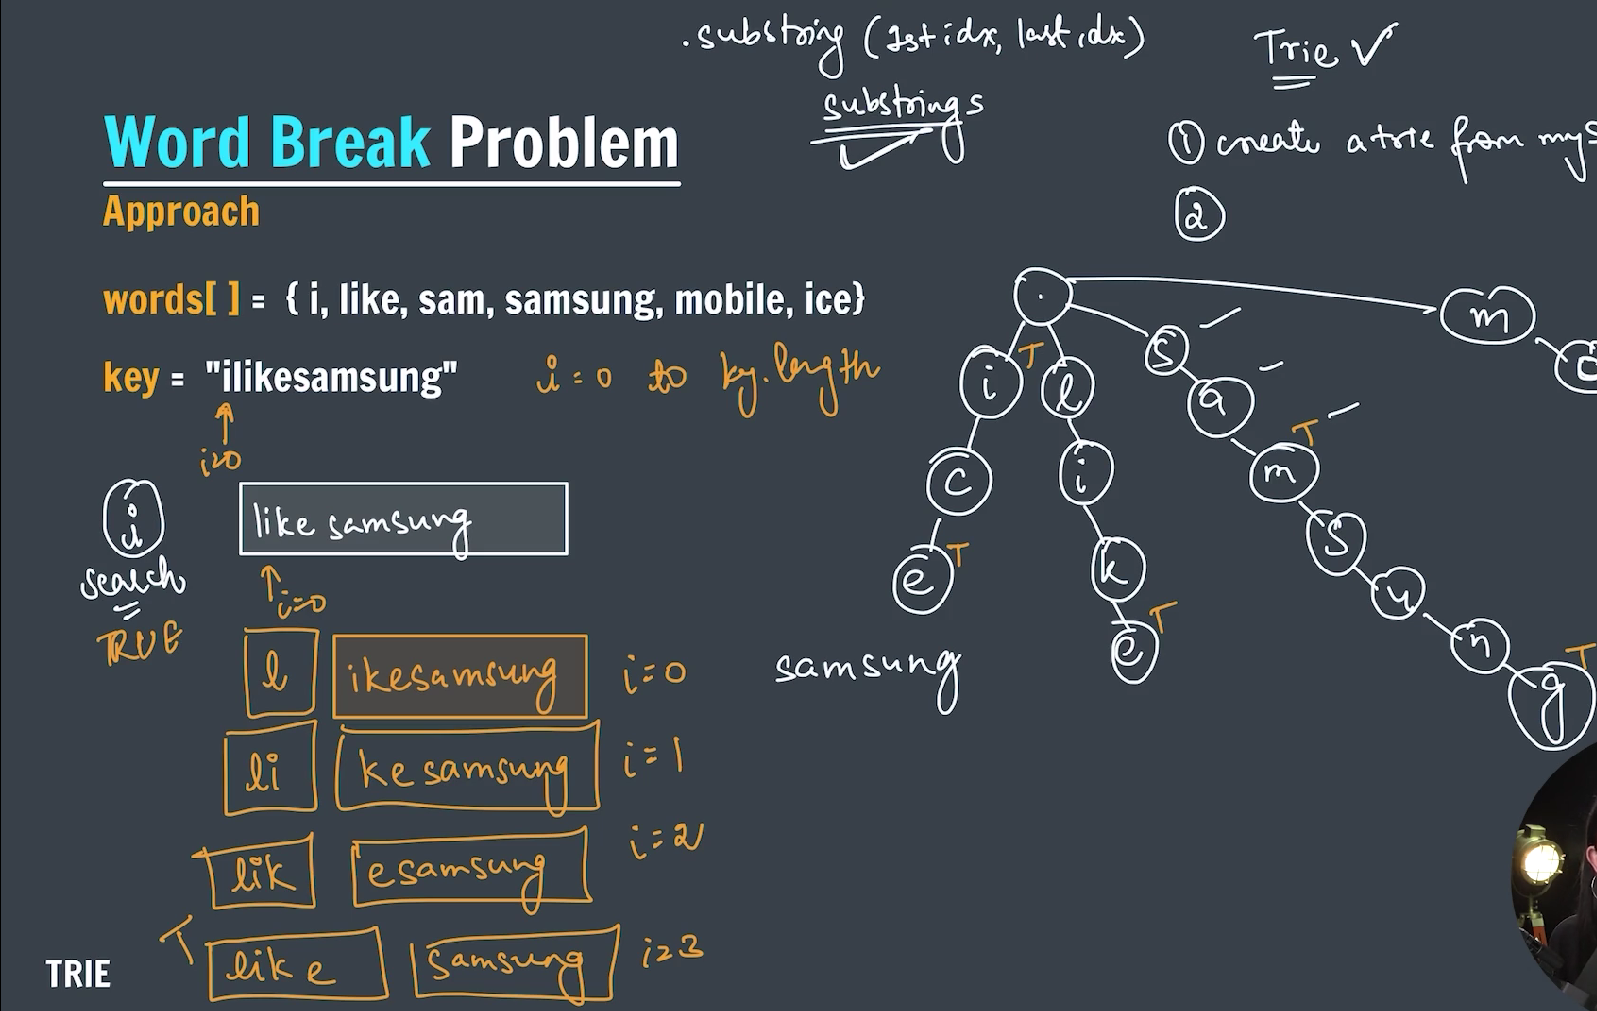 .substring (1st idx, last idx)
substrings
Trie
① create a trie from my
②
Word Break Problem
Approach
words[ ] = { i, like, sam, samsung, mobile, ice}
key = "ilikesamsung"
i = 0 to ky.length
i=0
i
search
TRUE
like samsung
i=0
l ikesamsung i=0
li kesamsung i=1
lik esamsung i=2
T like samsung i=3
samsung
.
i T l s m
c i a o
e T k m T
e T s
u
n
g T
TRIE